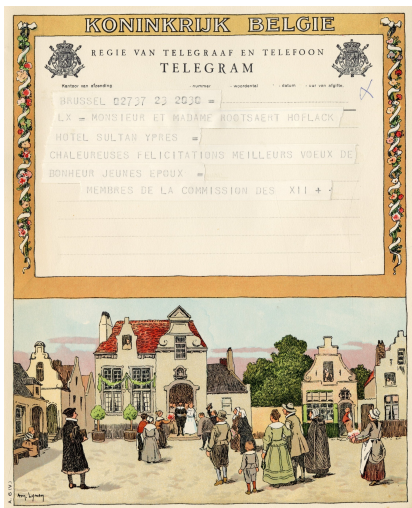 KONINKRIJK BELGIE
REGIE VAN TELEGRAAF EN TELEFOON
TELEGRAM
Kantoor van afzending - nummer - woordental - datum - uur van afgifte.
BRUSSEL 02737 23 2030 =
LX = MONSIEUR ET MADAME ROOTSAERT HOFLACK
HOTEL SULTAN YPRES =
CHALEUREUSES FELICITATIONS MEILLEURS VOEUX DE
BONHEUR JEUNES EPOUX =
MEMBRES DE LA COMMISSION DES XII + +